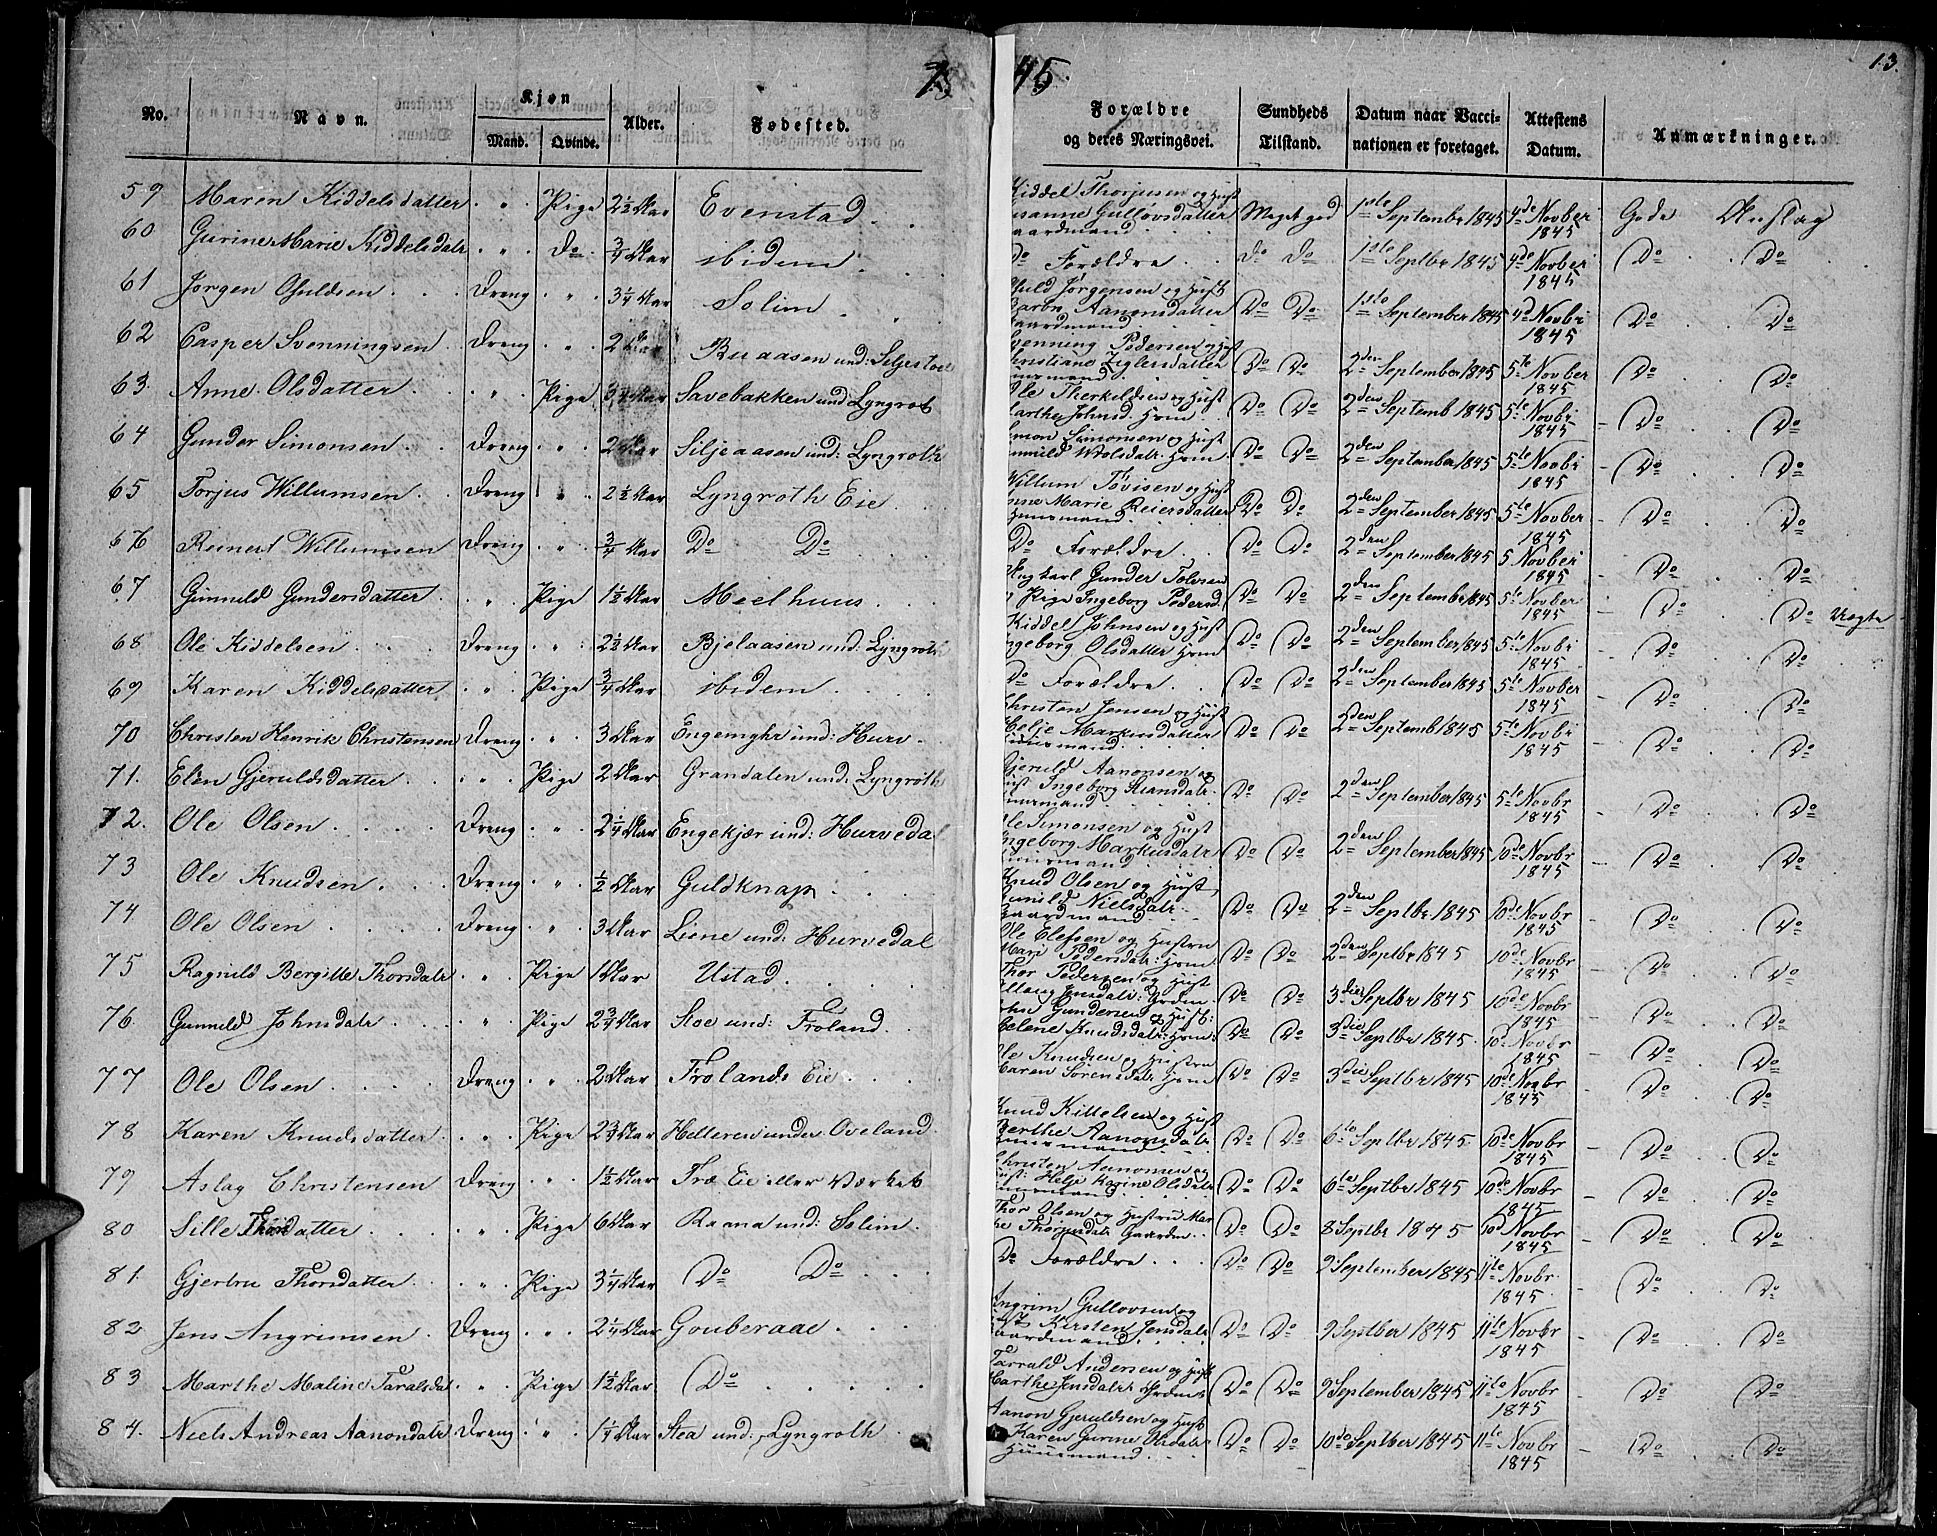 1845
13.
No. Navn. Kjøn Mand. Qvinde. Alder. Fødested. Forældre og deres Næringsvei. Sundheds Tilstand. Datum naar Vaccinationen er foretaget. Attestens Datum. Anmærkninger.
59 Maren Kiddelsdatter " Pige 2½ Aar Evenstad. Kiddel Thorjusen og Hust Susanne Gulløvsdatter Gaardmand Meget god 1ste September 1845 4de Novber 1845 Gode Anslag
60 Gurine Marie Kiddelsdatr " Do ¾ Aar ibidem Do Forældre Do Do 1ste Septbr 1845 4de Novber 1845 Do Do
61 Jørgen Ofuldsen Dreng " 3¼ Aar Solim Ofuld Jørgensen og Hust Aanonsdatter Gaardmand Do Do 1ste September 1845 4de Novbr 1845 Do Do
62 Casper Svenningsen Dreng " 2 Aar Buaasen und: Svenning Pedersen og Hust Christiane Ziglersdatter Huusmand Do Do 2den September 1845 5te Novber 1845 Do Do
63. Anne Olsdatter " Pige Aar Savebakken und Lyngrot Ole Therkildsen og Hust Marthe Johnsd. Hsm Do Do 2den Septemb 1845 5te Novbr 1845 Do Do
64 Gunder Simonsen Dreng " 2 Aar Siljeaasen und: Lyngroth Simon Simonsen og Hust Hsm Do Do 2den September 1845 5te Novbr 1845 Do Do
65 Torjus Willumsen Dreng " 2½ Aar Lyngroth Eie Willum Tovisen og Hust Anne Marie Reiersdatter Huusmand Do Do 2den September 1845 5te Novber 1845 Do Do
66 Reinert Willumsen Dreng " ¾ Aar Do Do Do Forældre Do Do 2den September 1845 5 Novber 1845 Do Do
67 Gunnild Gundersdatter " Pige 1½ Aar Mielhuus Ungkarl Gunder Tolvsen og Pige Ingeborg Pedersd. Do Do 2den September 1845 5te Novber 1845 Do Do Uægte
68 Ole Kiddelsen Dreng " 2½ Aar Bjelaasen und: Lyngroth Kiddel Johnsen og Hust Ingeborg Olsdatter Hsm Do Do 2den September 1845 5te Novbr 1845 Do Do
69 Karen Kiddelsdatter " Pige ¾ Aar ibidem Do Forældre Do Do 2den September 1845 5te Novber 1845 Do Do
70 Christen Henrik Christensen Dreng " 3 Aar Engemyhr und: Hurv Christen Jensen og Hust Helje Markusdatter Huusmand Do Do 2den September 1845 5te Novbr 1845 Do Do
71. Elen Gjeruldsdatter " Pige 2 Aar Grandalen und: Lyngroth Gjeruld Aanonsen og Hust Ingeborg Huusmand Do Do 2den September 1845 5te Novbr 1845 Do Do
72. Ole Olsen Dreng " 2¼ Aar Engekjær und: Hurvedal Ole Simonsen og Hust Ingeborg Markusdatr Huusmand Do Do 2den September 1845 10de Novbr 1845 Do Do
73 Ole Knudsen Dreng " ½ Aar Guldknap Knud Olsen og Hust Gunild Nielsdatr Gaardmand Do Do 2den Septbr 1845 10de Novbr 1845 Do Do
74 Ole Olsen Dreng " 3 Aar Liene und: Hurvedal Ole Elefsen og Hustru Mari Pedersdatr: Hsm Do Do 2den Septbr 1845 10de Novbr 1845 Do Do
75 Ragnild Bergitte Thorsdatr " Pige 1 Aar Ustad Thor Pedersen og Hust Jensdatr: Grdm Do Do 3die Septbr 1845 10de Novbr 1845 Do Do
76 Gunnild Johnsdatr " Pige 2¾ Aar Stoe und: Froland. John Gundersen og Hust: Helene Knudsdatr: Hsm: Do Do 3die Septbr 1845 10de Novbr 1845 Do Do
77 Ole Olsen Dreng " 2 Aar Frolands Eie Ole Knudsen og Hustru Maren Sørensdatr Hsm Do Do 3die Septbr 1845 10de Novbr 1845 Do Do
78 Karen Knudsdatter " Pige 2¾ Aar Helleren under Oveland Knud Kittelsen og Hust Berthe Aanonsdatr Huusmand Do Do 6te Septbr 1845 10de Novbr 1845 Do Do
79 Aslag Christensen Dreng " 1½ Aar Træ Eie eller Værket Christen Aanonsen og Hust: Helje Karine Olsdatr Huusmand Do Do 6te Septbr 1845 10de Novbr 1845 Do Do
80 Sille Thorsdatter " Pige 6 Aar Raana und: Solim Thor Olsen og Hustru Marthe Thorjusdatr Gaardm Do Do 8 Septbr 1845 10d Novbr 1845 Do Do
81. Gjertru Thorsdatter " Pige 3¼ Aar Do Do Do Forældre Do Do 9 September 1845 11te Novbr 1845 Do Do
82 Jens Angrimsen Dreng " 2¼ Aar Gouberaae Angrim Gullovsen og Hust Kirsten Jensdatr Gaardmand Do Do 9 Septber 1845 11te Novbr 1845 Do Do
83 Marthe Maline Taralsdat " Pige 1½ Aar Do Tarrald Andersen og Hust Marthe Jensdatr Grdm Do Do 9 September 1845 11te Novbr 1845 Do Do
84. Niels Andreas Aanondatr Dreng " 1¼ Aar Stea und: Lyngroth Aanon Gjeruldsen og Hust Karen Gurine Olsdatr Huusmand Do Do 10de Septber 1845 11te Novbr 1845 Do Do